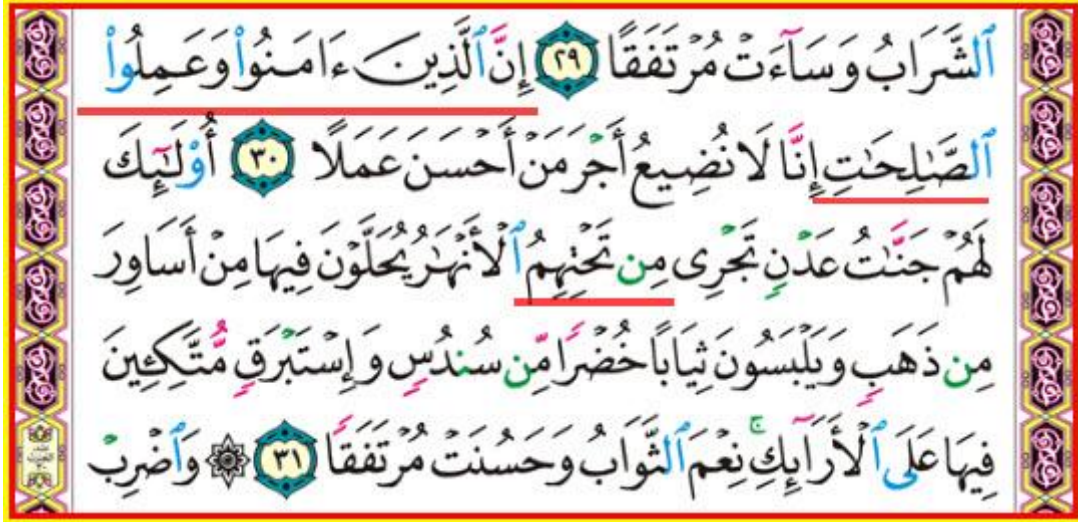 ٱلشَّرَابُ وَسَآءَتْ مُرْتَفَقًا ٢٩ إِنَّ ٱلَّذِينَ ءَامَنُوا۟ وَعَمِلُوا۟
ٱلصَّٰلِحَٰتِ إِنَّا لَا نُضِيعُ أَجْرَ مَنْ أَحْسَنَ عَمَلًا ٣٠ أُو۟لَٰٓئِكَ
لَهُمْ جَنَّٰتُ عَدْنٍ تَجْرِى مِن تَحْتِهِمُ ٱلْأَنْهَٰرُ يُحَلَّوْنَ فِيهَا مِنْ أَسَاوِرَ
مِن ذَهَبٍ وَيَلْبَسُونَ ثِيَابًا خُضْرًا مِّن سُندُسٍ وَإِسْتَبْرَقٍ مُّتَّكِـِٔينَ
فِيهَا عَلَى ٱلْأَرَآئِكِ ۚ نِعْمَ ٱلثَّوَابُ وَحَسُنَتْ مُرْتَفَقًا ٣١ ۞ وَٱضْرِبْ